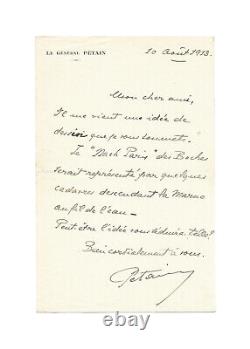 LE GÉNÉRAL PÉTAIN
10 Août 1918.
Mon cher ami,
Il me vient une idée de
dessin que je vous soumets.
Le "Nach Paris" des Boches
serait représenté par quelques
cadavres descendant la Marne
au fil de l'eau –
Peut-être l'idée vous
Bien cordialement à vous.
Pétain
ebay
withQ